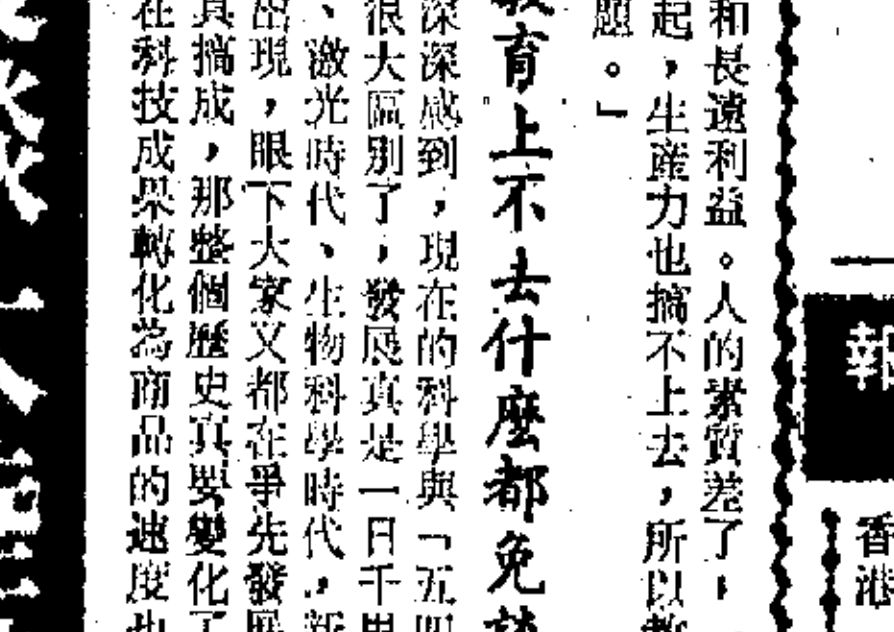 報
香港
和長遠利益。人的素質差了，
起，生產力也搞不上去，所以教
題。」
教育上不去什麼都免談
深深感到，現在的科學與「五四
很大區別了，發展真是一日千里
、激光時代、生物科學時代，新
出現，眼下大家又都在爭先發展
真搞成，那整個歷史真要變化了
在科技成果轉化為商品的速度也